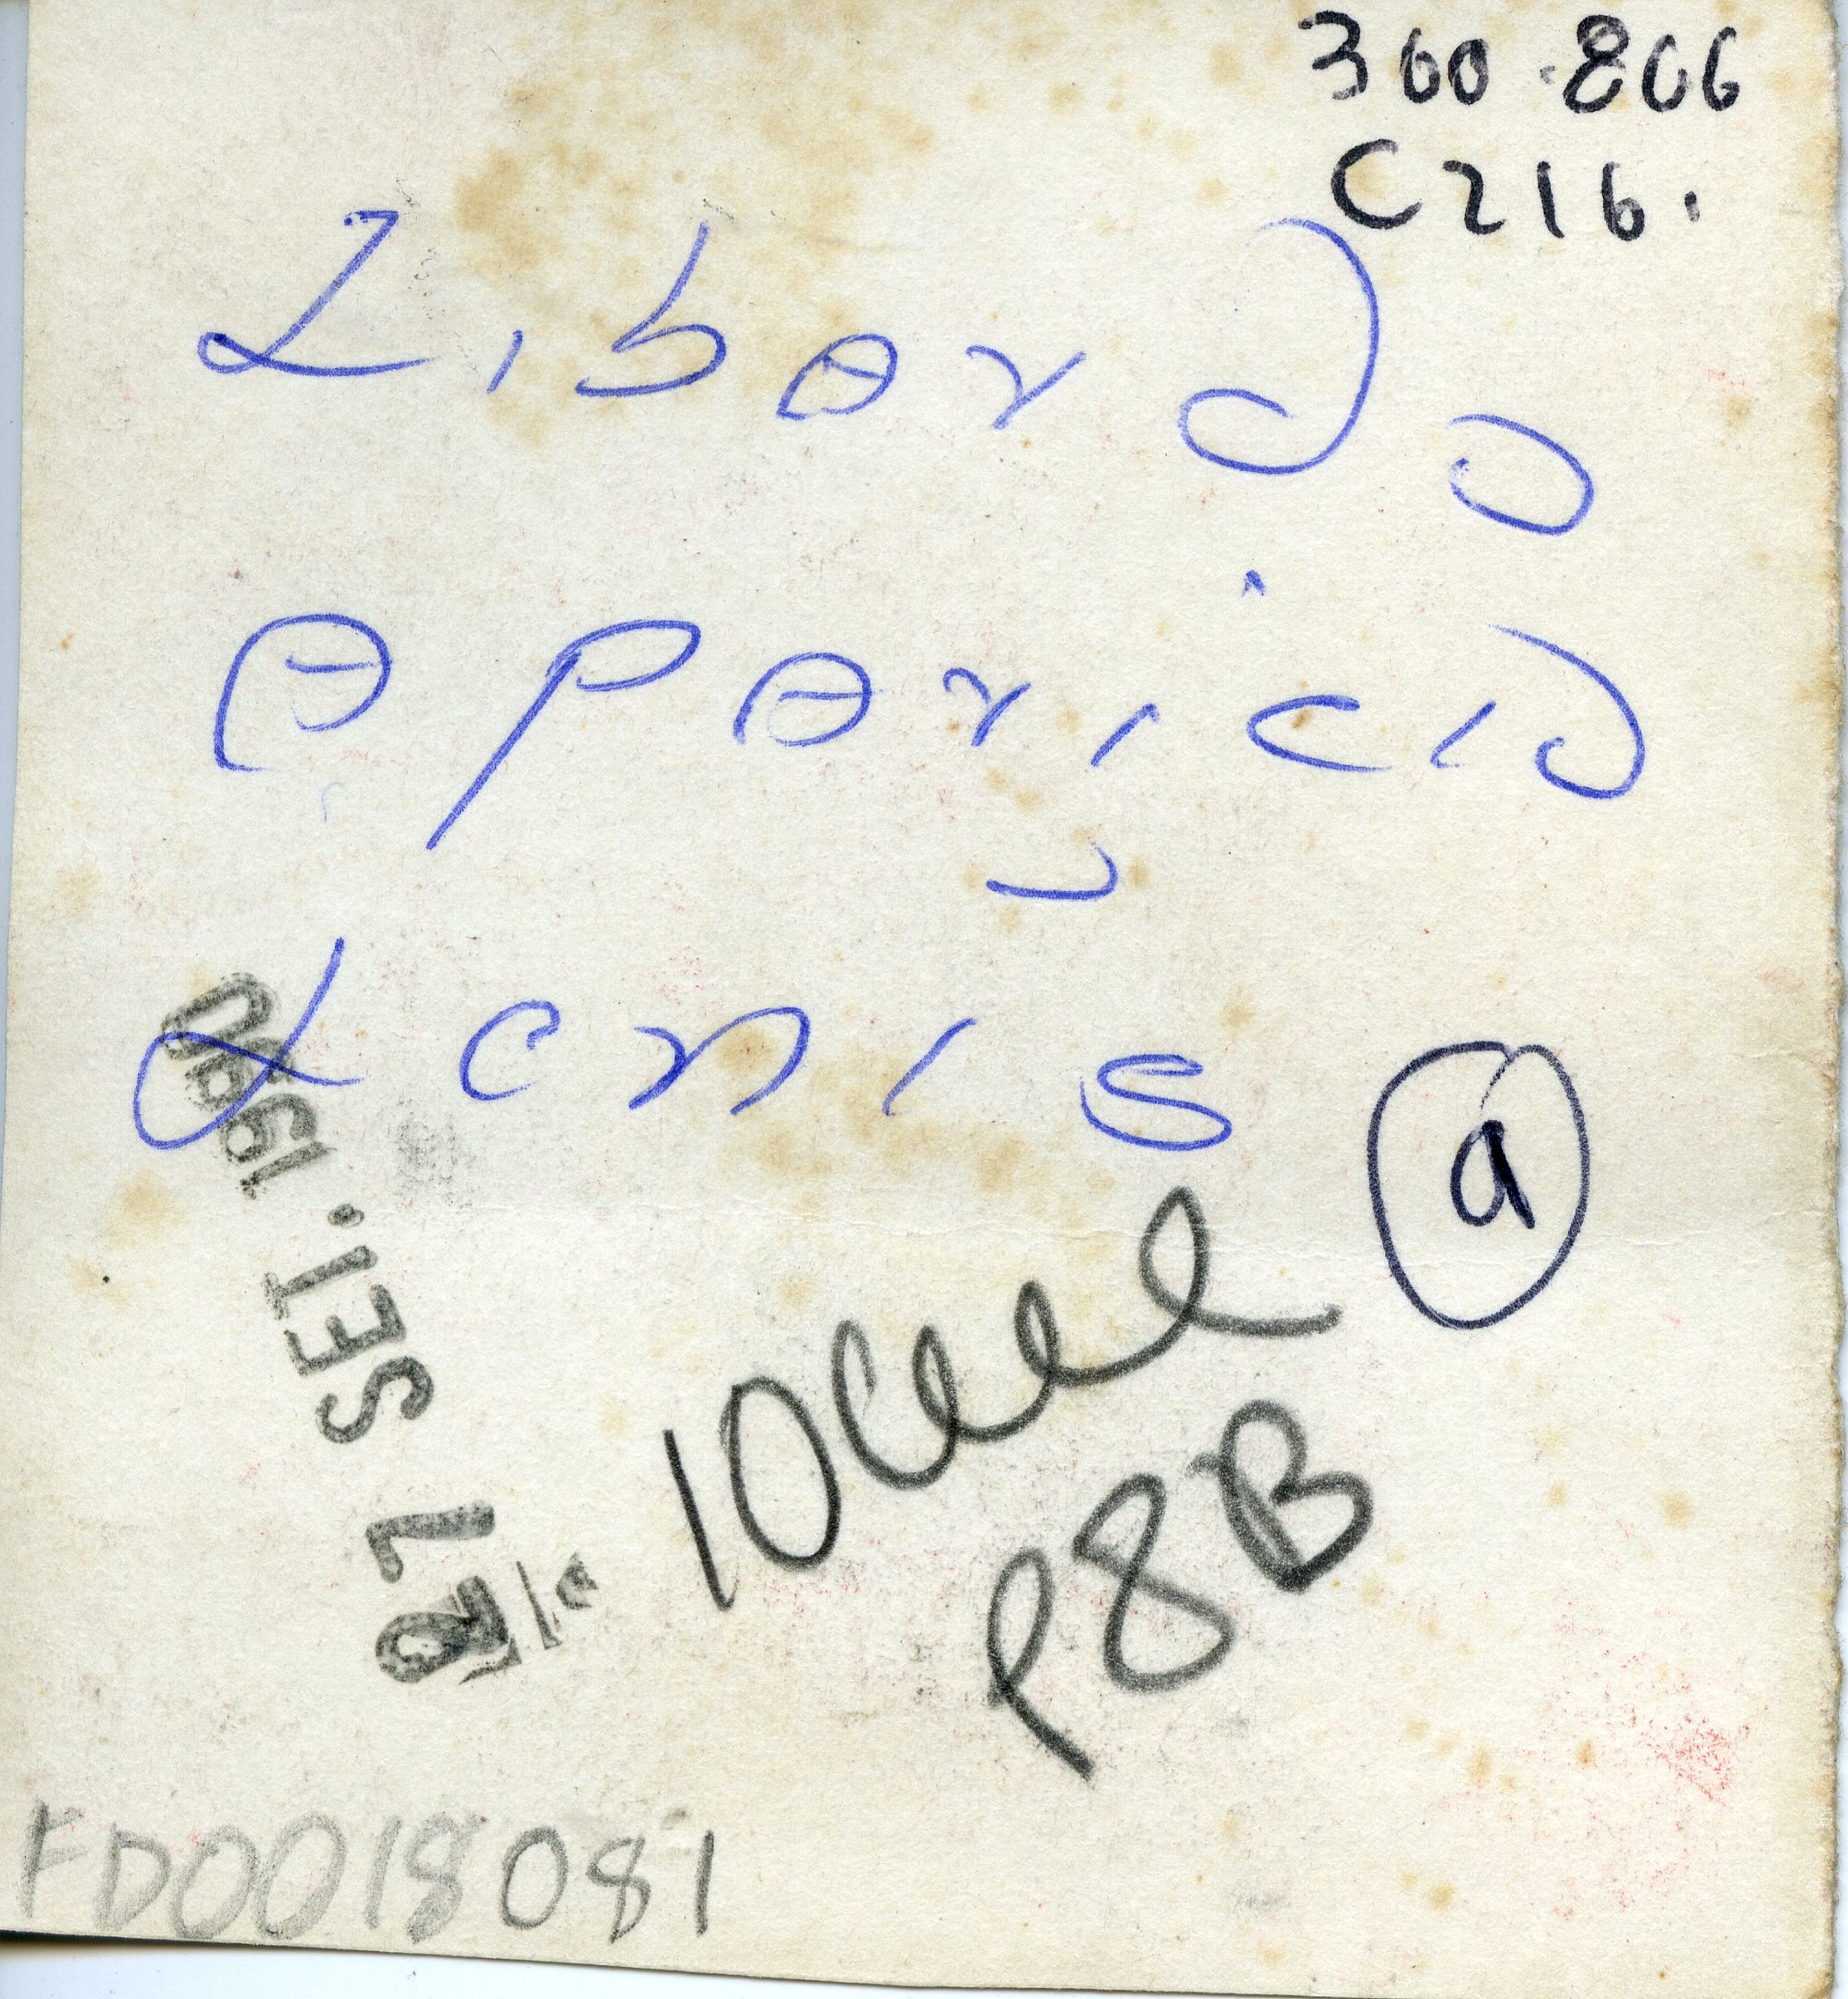 300.806
C216.
Libor Do
aparicio
Lenis
a
27 SET. 1990
10
P8B
FD0018081